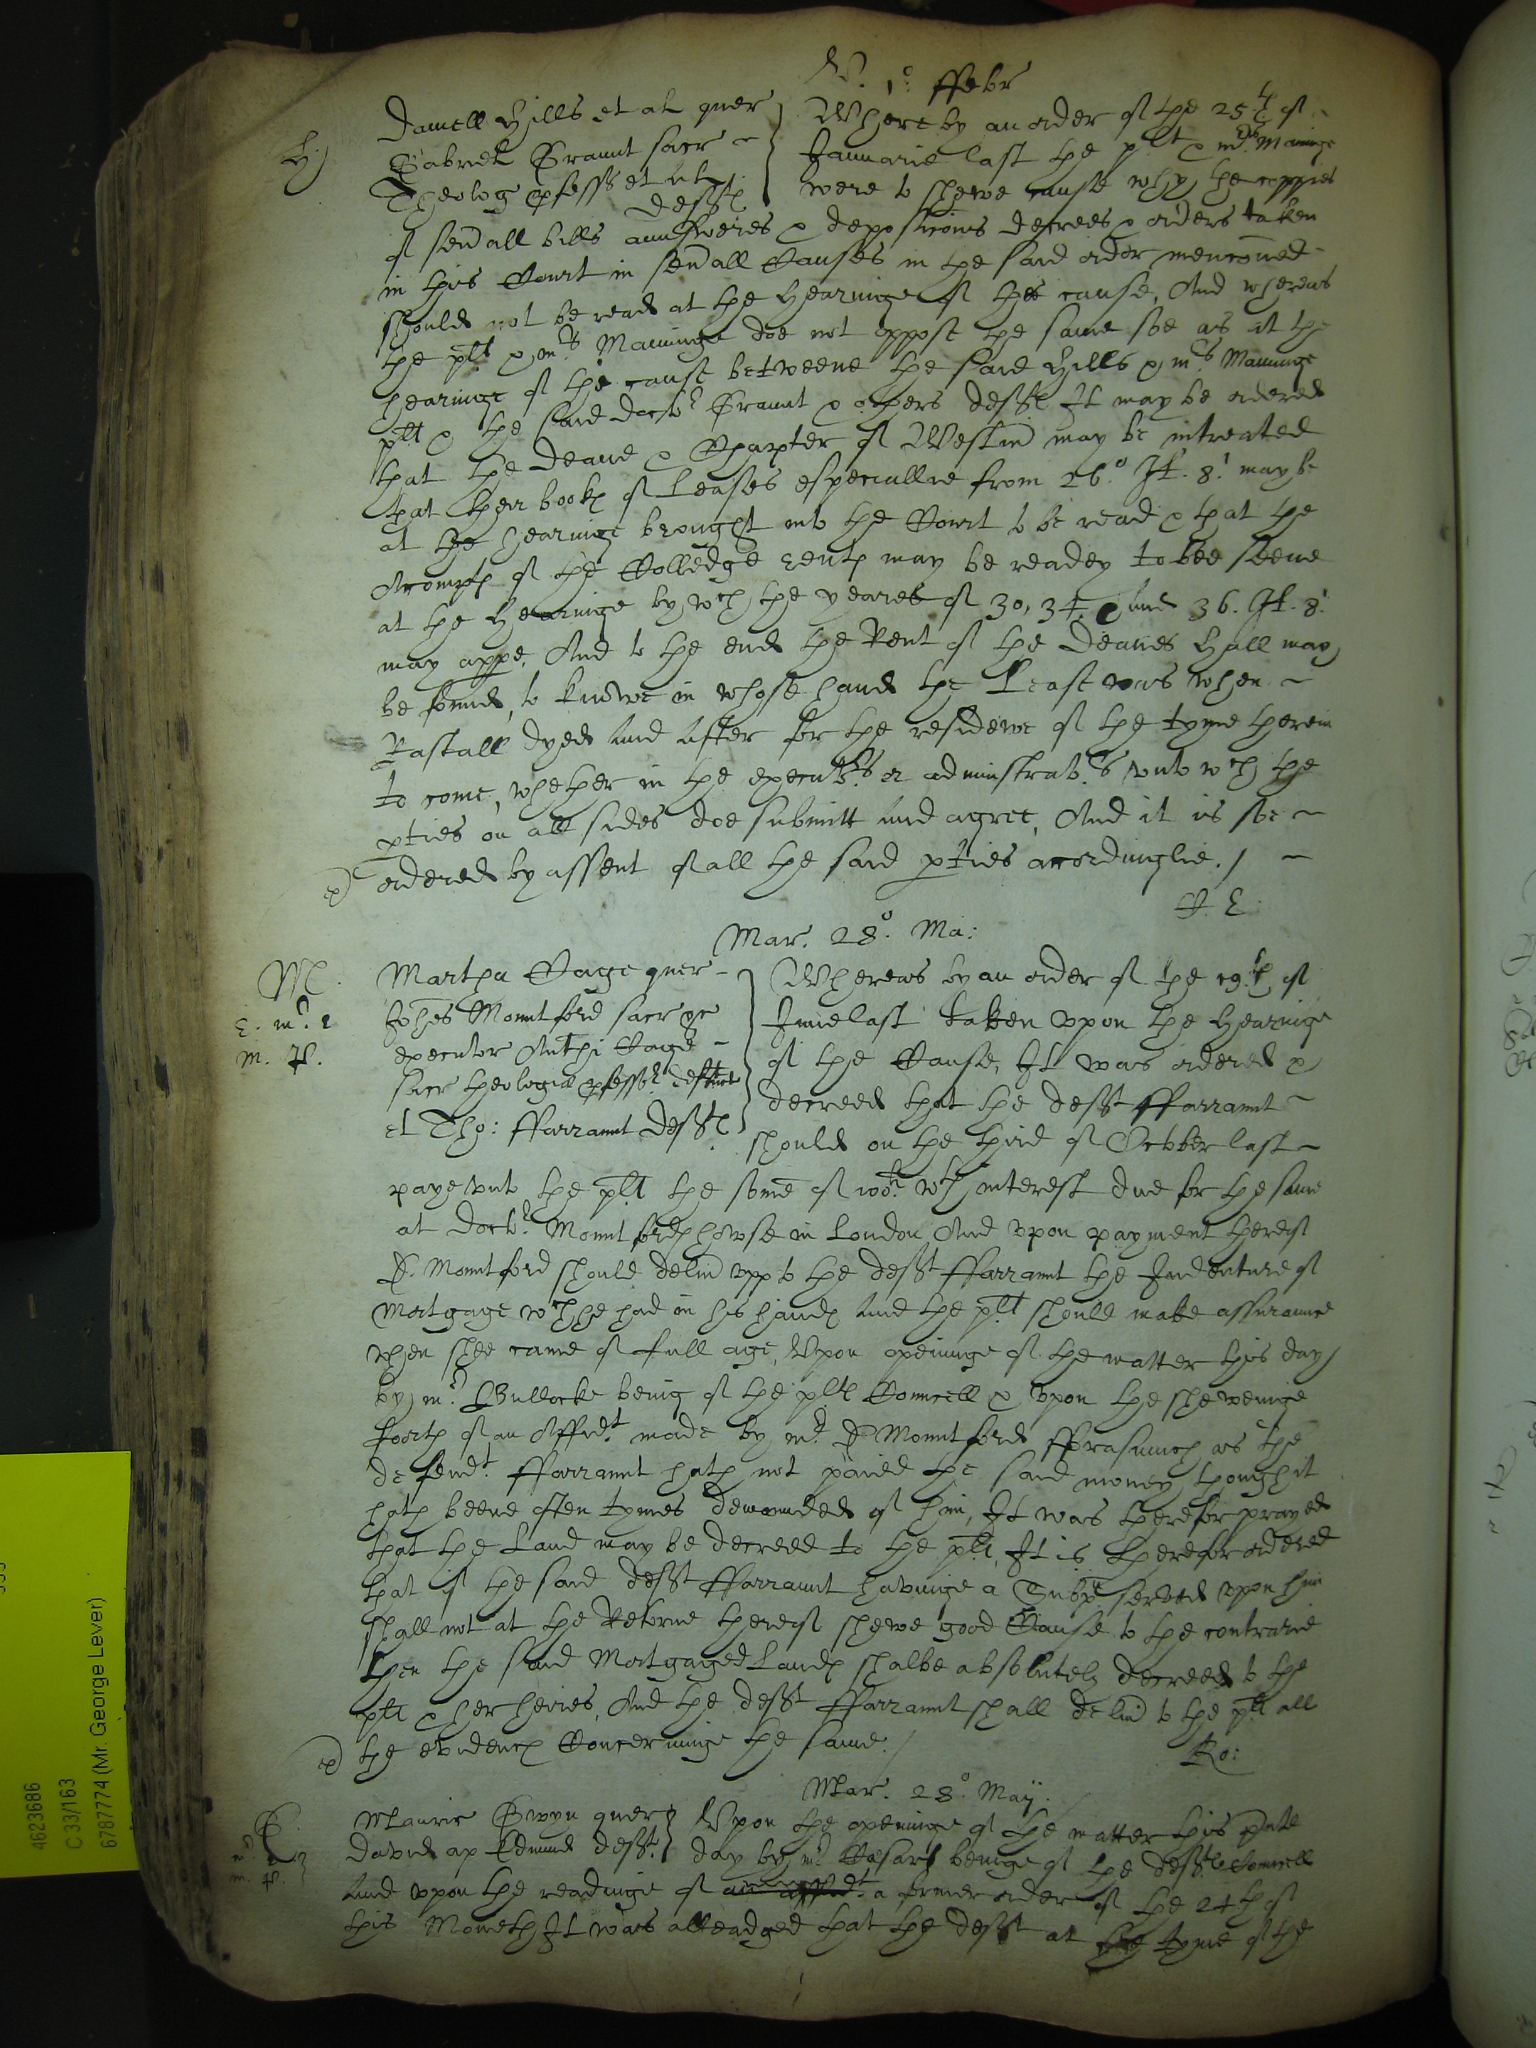 V. 1o ffebr
H
Daniell Hills et al quer
Gabriel Graunt sacr
Theolog pfessr et al
defftes
Whereby an order of the 25th of
Januarie last the plt & mris Maninge
were to shewe cause why the coppies
of sevall bills aunsweres & deposicons decrees & orders taken
in this Court in sevall Causes in the said order menconed
should not be read at the Hearinge of this cause, And whereas
the plt & mris Maninge doe not oppose the same soe as at the
hearinge of the cause betweene the said Hills & mris Maninge
plt & the said doctor Graunt & others defftes It may be ordered
that the deane & Chapter of Westm may be intreated
that their bookes of Leases especiallie from 26o H. 8i may be
at the hearinge brought into the Court to be read & that the
Accomptes of the Colledge rentes may be readey to bee seene
at the Hearinge by wch the yeares of 30, 34, and 36. H. 8i
may appe, And to the end the Rent of the deanes Hall may
be found, to knowe in whose hand the Lease was when
Rastall dyed and after for the residewe of the tyme therein
to come, whether in the executors or administrators unto wch the
pties on all sides doe submitt and agree, And it is soe
ordered by assent of all the said pties accordinglie. /
Mar. 28o. Ma:
M
Martha Cage quer
Johes Mountford sacr &c
executor Anthi Cage
sacr theologia pfessr defunct
et Tho: ffarrannt defftes
Whereas by an order of the 19th of
June last taken upon the Hearinge
of the Cause, It was ordered &
decreed that the defft ffarrannt
should on the third of October last
paye unto the plt the some of 100li wth interest due for the same
at doctr Mountfordes howse in London And upon payment thereof
D. Mountford should deliv upp to the defft ffarrannt the Indenture of
Mortgage wch he had in his handes and the plt should make assurance
when shee came of full age, Upon openinge of the matter this day
by mr Bullocke being of the pltes Councell & upon the shewinge
foorth of an Affidt made by mr D Mountford fforasmuch as the
defendt ffarrannt hath not paied the said money though it
hath beene often tymes demanded of him, It was therefor prayed
that the Land may be decreed to the plt, It is therefor ordered
that if the said defft ffarrannt havinge a Subp served upon him
shall not at the Retorne thereof shewe good Cause to the contrarie
then the said Mortgaged Landes shalbe absolutely decreed to the
plt & her heires, And the defft ffarrannt shall deliv to the plt all
the evidences Concerninge the same. /
Ro:
Mar. 28o. Maij.
G
Maurice Gwyn quer
David ap Edmund defft
Upon the openinge of the matter this psnte
day by mr Cesar beinge of the defftes Councell
and upon the readinge of an affidt a former order of the 24th of
this Moneth It was alleadged that the defft at the tyme of the
4623686
C 33/163
6787774 (Mr. George Lever)